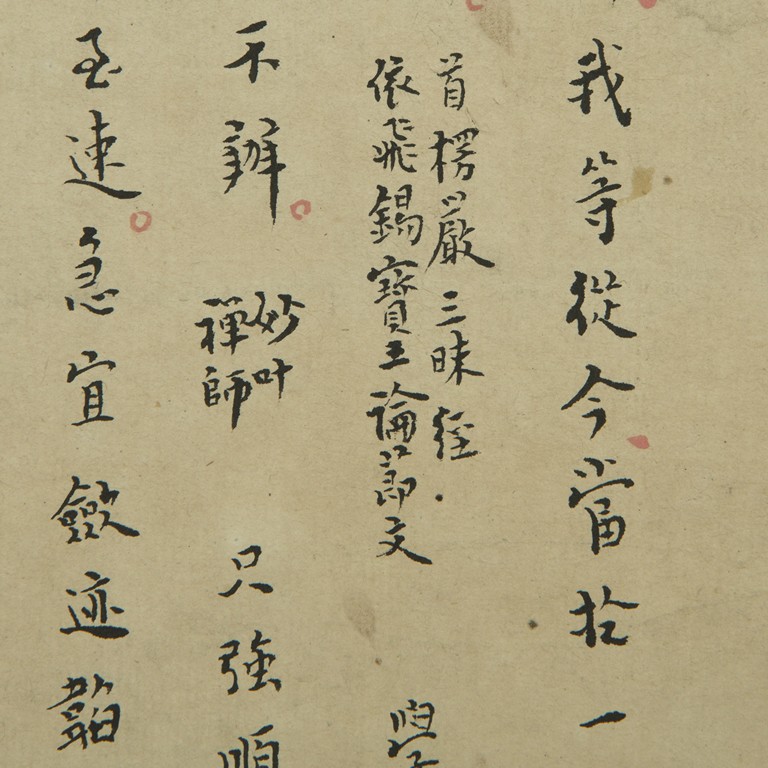 我等從今當於一
首楞嚴三昧經.
依飛錫寶王論節文
不辨 妙叶禪師 只強順
至速急宜斂迹韜